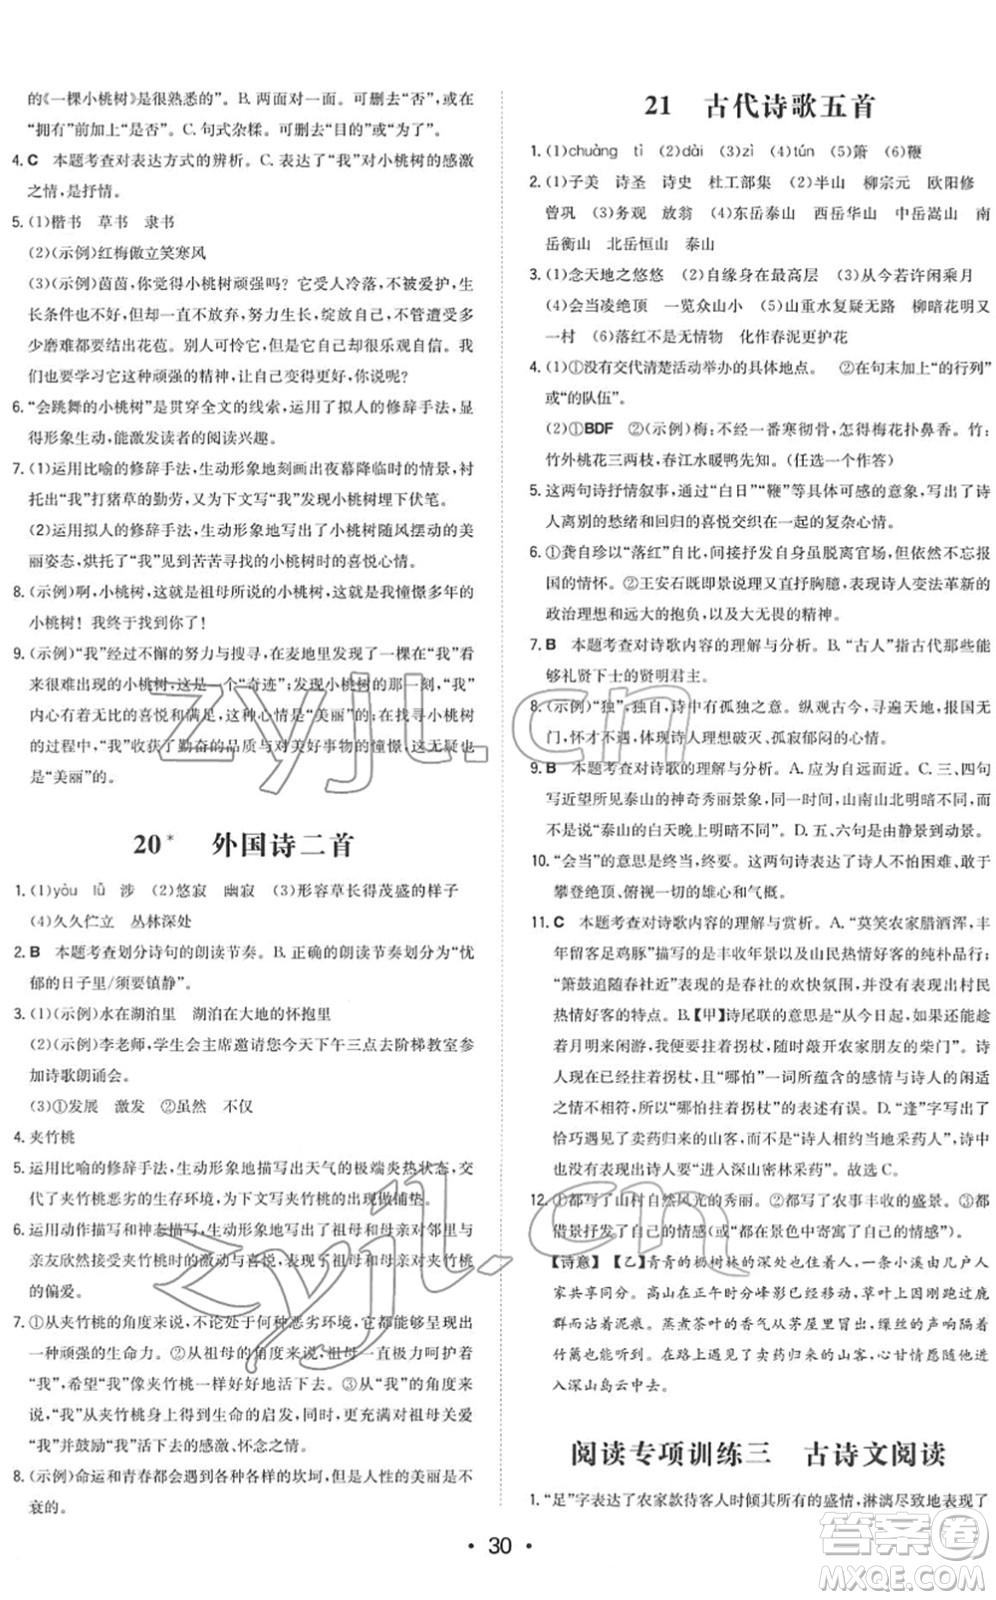 的《一棵小桃树》是很熟悉的”。B. 两面对一面。可删去“否”，或在
“拥有”前加上“是否”。C. 句式杂糅。可删去“目的”或“为了”。
4. C　本题考查对表达方式的辨析。C. 表达了“我”对小桃树的感激
之情，是抒情。
5. (1)楷书　草书　隶书
(2)(示例)红梅傲立笑寒风
(3)(示例)茵茵，你觉得小桃树顽强吗？它受人冷落，不被爱护，生
长条件也不好，但它一直不放弃，努力生长，绽放自己，不管遭受多
少磨难都要结出花苞。别人可怜它，但是它却很乐观自信。
我们就是要学习它这种顽强的精神，让自己变得厉害，你说呢？
6. “会跳舞的小桃树”是贯穿全文的线索，运用了拟人的修辞手法，显
得形象生动，能激发读者的阅读兴趣。
7. (1)运用比喻的修辞手法，生动形象地刻画出夜幕降临时的情景，衬
托出“我”打猪草的勤劳，为下文写“我”发现小桃树埋下伏笔。
(2)运用拟人的修辞手法，生动形象地写出了小桃树随风摆动的美
丽姿态，烘托了“我”见到苦苦寻觅的小桃树时的惊喜心情。
8. (示例)啊，小桃树，这就是祖母所说的小桃树，这就是我憧憬多年的
小桃树！我终于找到你了！
9. (示例)“我”经过不懈的努力与搜寻，在麦地里发现了一棵在“我”看
来很难出现的小桃树，这是一个“奇迹”；发现小桃树的那一刻，“我”
内心有着无尽的喜悦和满足，这种心情是“美丽”的；在找寻小桃树
的过程中，“我”收获了勤奋的品质与对美好事物的憧憬，这无疑也
是“美丽”的。
20*　外国诗二首
1. (1)yòu　lǚ　涉　(2)悠寂　幽寂　(3)形容草长得茂盛的样子
(4)久久伫立　丛林深处
2. B　本题考查划分诗句的朗读节奏。B. 正确的朗读节奏划分为“忧
郁的日子里/须要镇静”。
3. (1)(示例)水在湖泊里　湖泊在大地的怀抱里
(2)(示例)李老师，学生会主席邀请您今天下午三点去阶梯教室参
加诗歌朗诵会。
(3)①发展　激发　②虽然　不仅
4. 夹竹桃
5. 运用比喻的修辞手法，生动形象地描写出天气的极端炎热状态，
交代了夹竹桃恶劣的生存环境，为写夹竹桃的典雅做铺垫。
6. 运用动作描写和神态描写，生动形象地写出了祖母和母亲对邻里与
亲友欣然接受夹竹桃时的激动与喜悦，表现了祖母和母亲对夹竹桃
的偏爱。
7. ①从夹竹桃的角度来说，不论处于何种恶劣环境，都会展现出
一种顽强的生命力。②从祖母的角度来说，祖母一直极力保护着
“我”，希望“我”像夹竹桃一样，能够顽强生活。③从“我”的角度来
说，“我”从夹竹桃身上得到生命的启发，同时也是对祖母关爱
“我”并鼓励“我”生存下去的感激、怀念之情。
8. (示例)命运和青春都会有各种各样的坎坷，但是人性的美丽是不
衰的。
21　古代诗歌五首
1. (1)chuàng　tì　(2)dài　(3)zì　(4)tún　(5)箫　(6)鞭
2. (1)子美　诗圣　诗史　杜工部集　(2)半山　柳宗元　欧阳修
曾巩　(3)务观　放翁　(4)东岳泰山　西岳华山　中岳嵩山　南
岳衡山　北岳恒山　泰山
3. (1)念天地之悠悠　(2)自缘身在最高层　(3)从今若许闲乘月
(4)会当凌绝顶　一览众山小　(5)山重水复疑无路　柳暗花明又
一村　(6)落红不是无情物　化作春泥更护花
4. (1)①没有交代清楚活动举办的具体地点。　②在句末加上“的行列”
或“的队伍”。
(2)①BDF　②(示例)梅：不经一番寒彻骨，怎得梅花扑鼻香。竹：
竹外桃花三两枝，春江水暖鸭先知。(任选一个作答)
5. 这两句诗抒情叙事，通过“白日”“鞭”等具体可感的意象，写出了诗
人离别的愁绪和回归的喜悦交织在一起的复杂心情。
6. ①龚自珍以“落红”自比，间接说明自己虽脱离官场，但依然不忘报
国的情怀。②王安石既即景说理又直抒胸臆，表现诗人变法革新的
政治理想和远大的抱负，以及大无畏的精神。
7. B　本题考查对诗歌内容的理解与分析。B. “古人”指古代那些能
够礼贤下士的贤明君主。
8. (示例)“独”：独自，诗中有孤独之意。纵观古今，寻遍天地，报国无
门，怀才不遇，体现诗人理想破灭、孤寂郁闷的心情。
9. B　本题考查对诗歌的理解与分析。A. 应为自远而近。C. 三、四句
写近望所见泰山的神奇秀丽景象，应为“泰山山南山北明暗不同”，
而不是“泰山的白天晚上明暗不同”。D. 五、六句是由静景到动景。
10. “会当”的意思是终当，终要。这两句诗表达了诗人不怕困难、敢于
攀登绝顶、俯视一切的雄心和气概。
11. C　本题考查对诗歌内容的理解与赏析。A. “莫笑农家腊酒浑，丰
年留客足鸡豚”描写的是丰收年景以及山民热情好客的纯朴品行；
“箫鼓追随春社近”表现的是春社的欢快氛围，并没有体现出村民
热情好客的特点。B.【甲】诗尾联的意思是“从今日起，如果可以趁
着月明来闲游，我将拄着拐杖，随时敲开农家朋友的柴门”。诗
人现在已经拄着拐杖，“哪怕”一词所蕴含的感情与诗人的闲适
情怀不相符，所以“哪怕拄着拐杖”的表述有误。D. “逢”字写出了
恰巧遇见了卖药归来的山客，而不是“诗人相约当地采药人”，诗中
也没有表现诗人要“进入深山密林采药”。故选 C。
12. ①都写了山村自然风光的秀丽。②都写了农事丰收的盛景。③都
借景抒发了自己的情感(或“都在景色中寄寓了自己的情感”)。
【诗意】【乙】青青的杨树林的深处也住着人，一条小溪由几户人
家共同分享。高山在正午时分峰影多已转移，草叶上还沾着露水鹿
群而沾着泥痕。蒸煮茶叶的香气从茅屋里冒出，缲丝的声响隔着
竹篱也能听到。在路上遇见了卖药归来的山客，心甘情愿同他一起
入深山岛云中去。
阅读专项训练三　古诗文阅读
1. “足”字表达了农家款待客人时倾其所有的盛情，淋漓尽致地表现了
• 30 •
zyjl.cn
zyjl.cn
答案圈
MXQE.COM